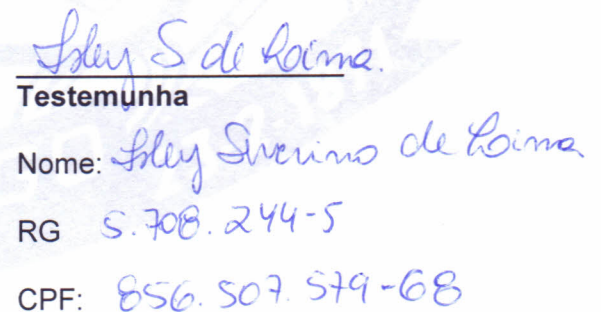 Isley S de Loima.
Testemunha
Nome: Isley Siverino de Loima
RG 5.708.244-5
CPF: 856.507.579-68